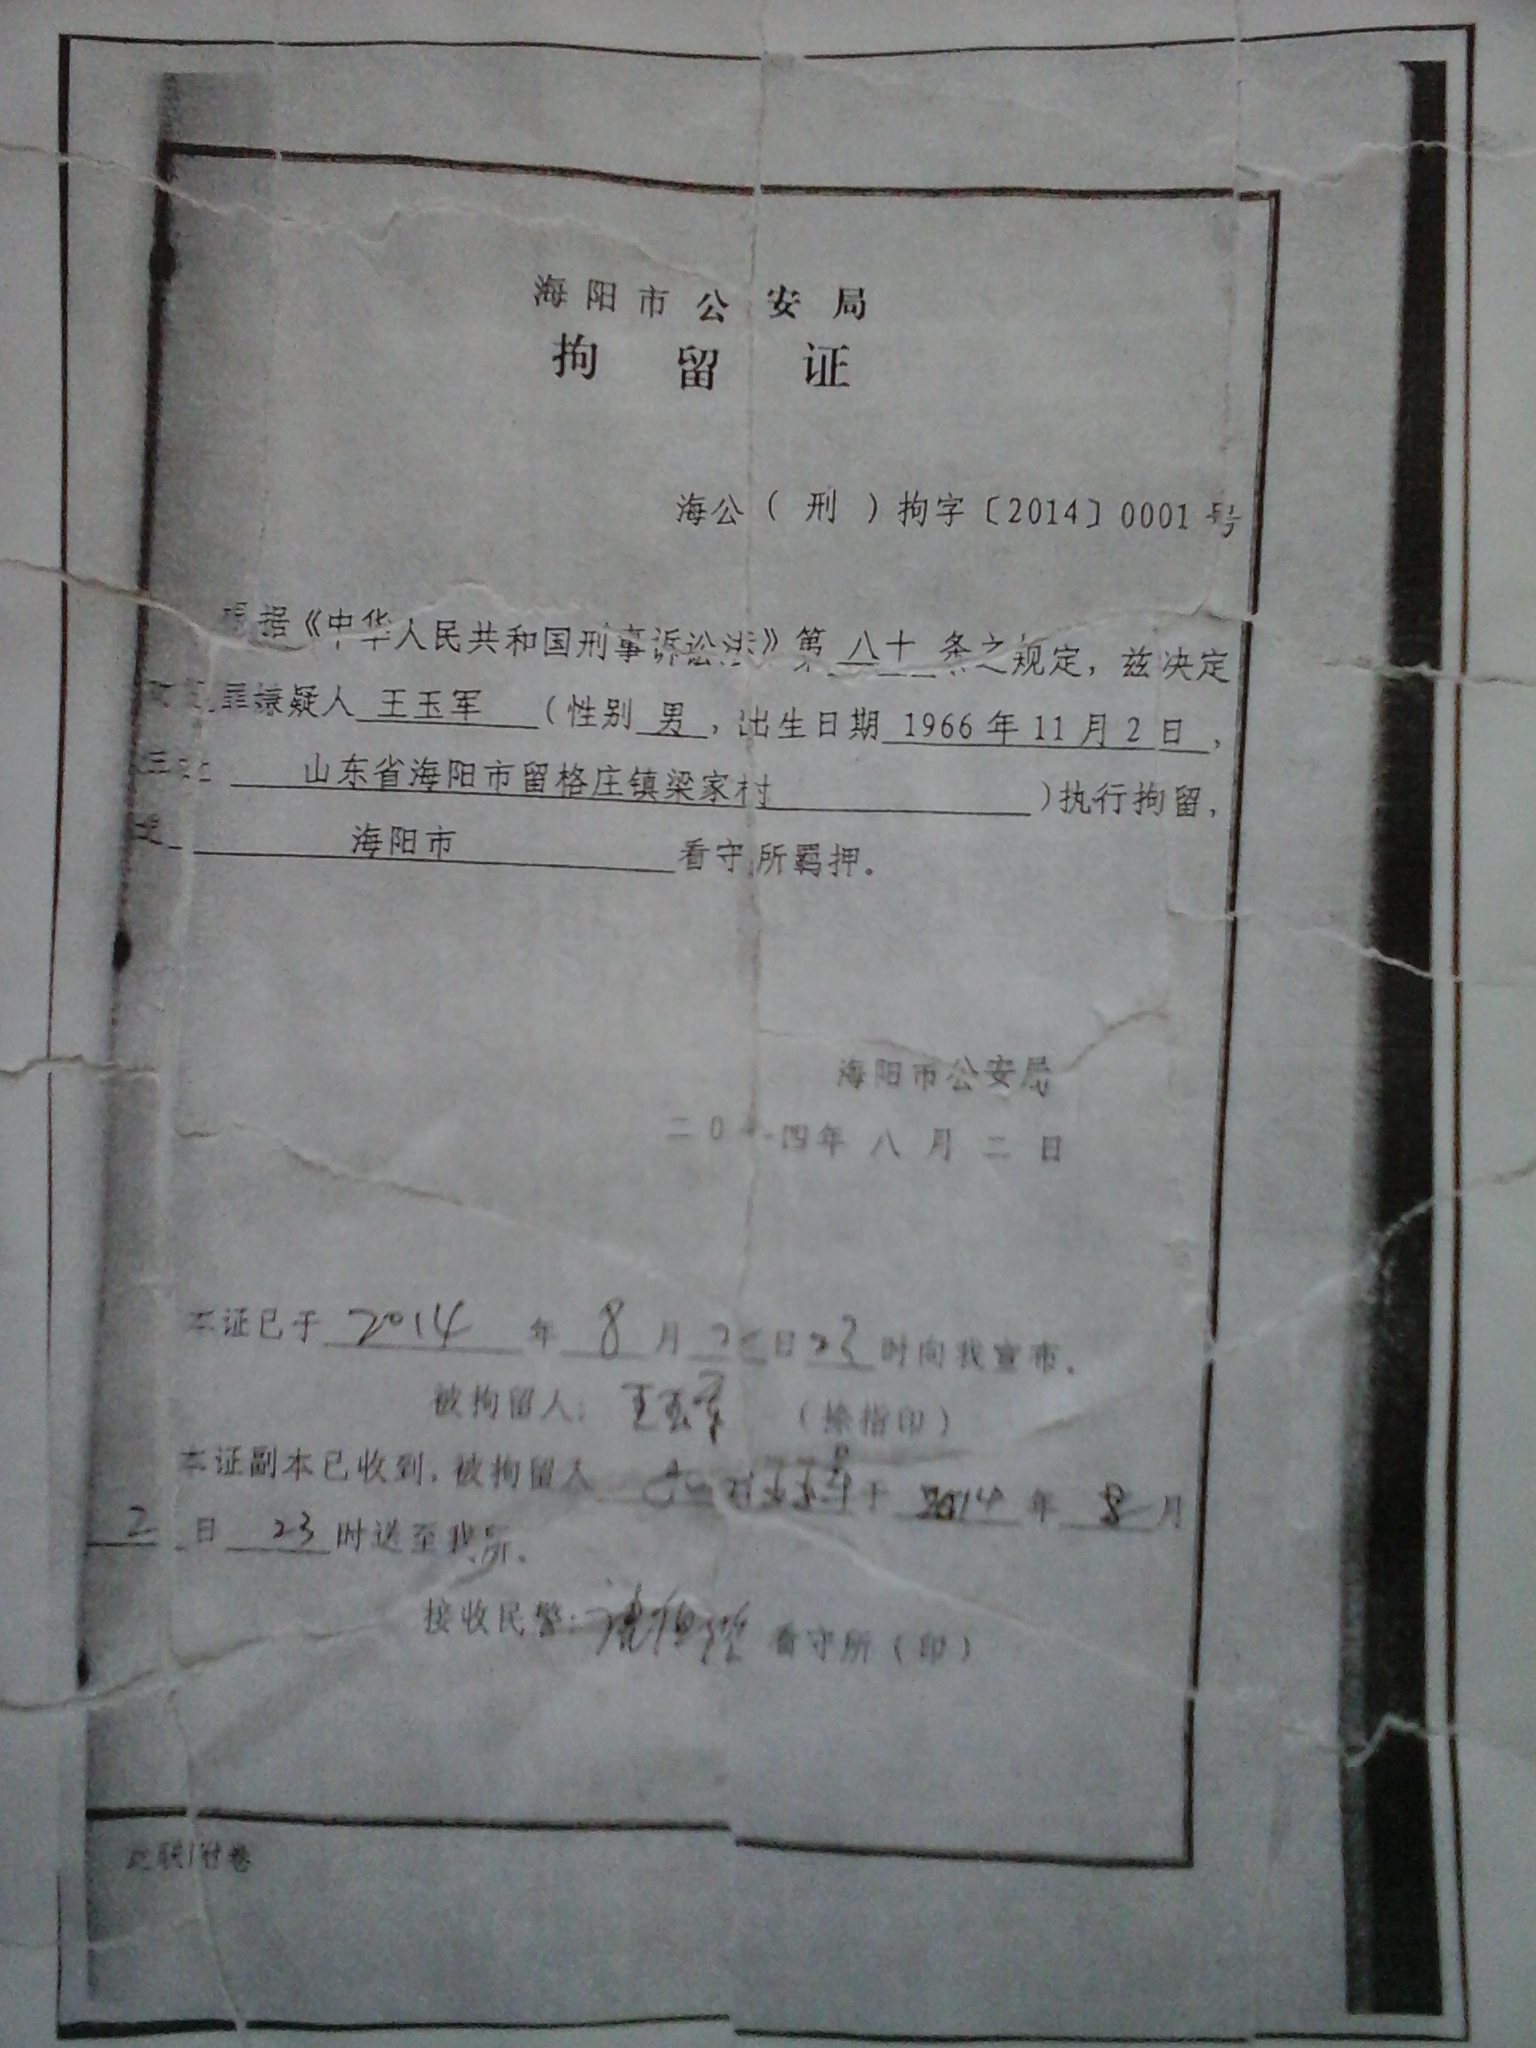 海阳市公安局
拘留证
海公（刑）拘字〔2014〕0001号
根据《中华人民共和国刑事诉讼法》第八十条之规定，兹决定
罪嫌疑人王玉军（性别男，出生日期1966年11月2日，
山东省海阳市留格庄镇梁家村）执行拘留，
海阳市看守所羁押。
海阳市公安局
二0一四年八月二日
本证已于2014年8月2日23时向我宣布。
被拘留人：王玉军（捺指印）
本证副本已收到，被拘留人王玉军于2014年8月
2日23时送至我所。
接收民警：看守所（印）
此联附卷